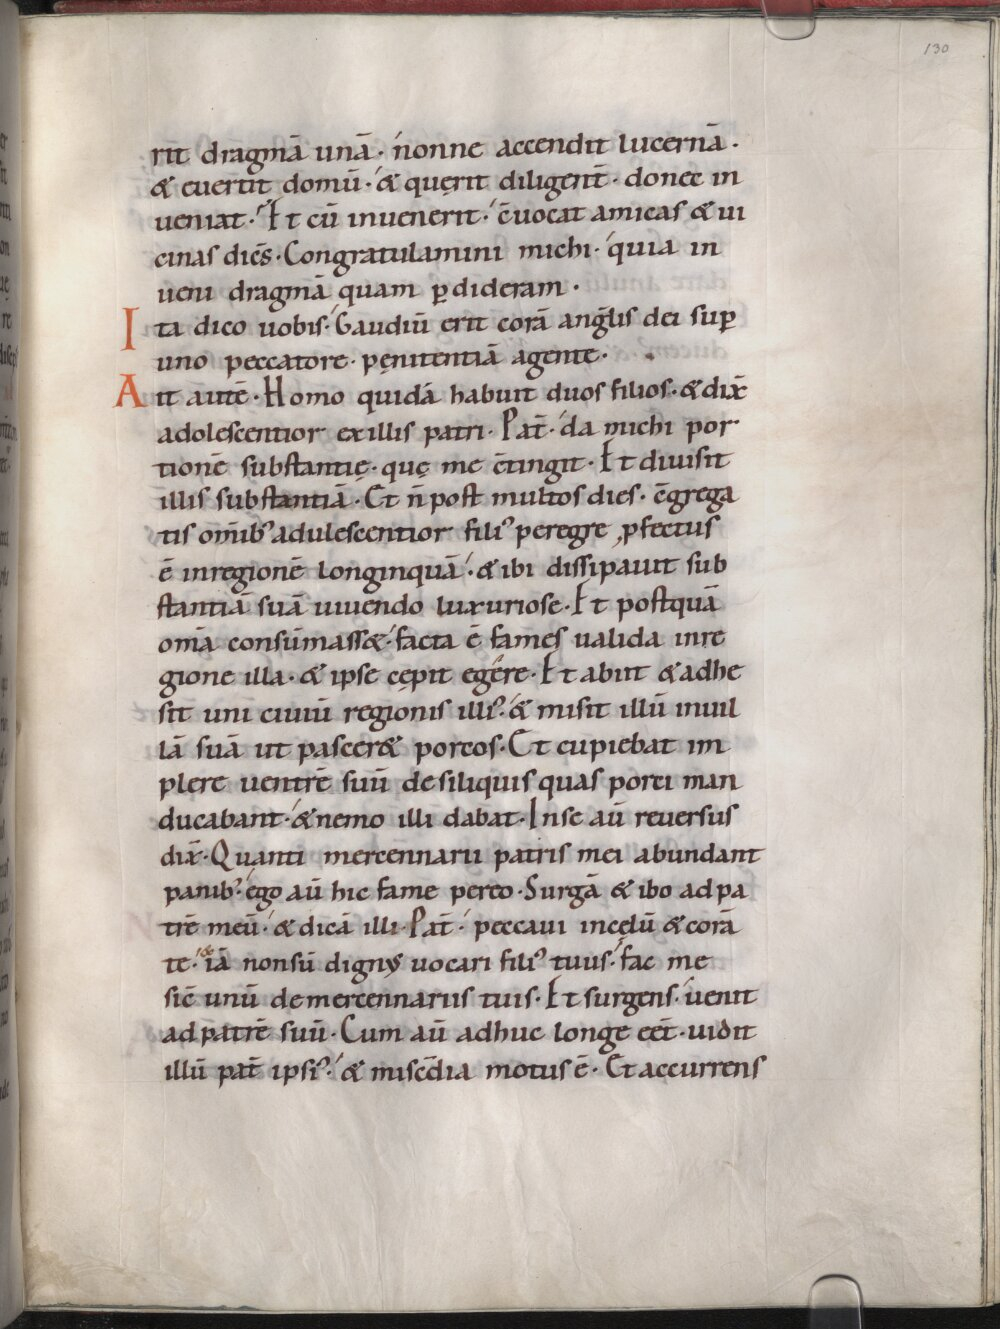 130
rit dragmā unā · nonne accendit lucernā ·
& euertit domū · & quęrit diligent̄ · donec in
ueniat · Et cū inuenerit · c̄uocat amicas & ui
cinas dicēs · Congratulamini michi · quia in
ueni dragmā quam ꝑdideram ·
Ita dico uobis · Gaudiū erit corā angl̄is dei suꝑ
uno peccatore · pęnitentiā agente ·
Ait autē · Homo quidā habuit duos filios · & dix̄
adolescentior ex illis patri · Pat̄ · da michi por
tionē substantię · quę me c̄tingit · Et diuisit
illis substantiā · Et n̄ post multos dies · c̄grega
tis om̄ib; adulescentior fili᾽ peregre ꝓfectus
ē in regionē longinquā · & ibi dissipauit sub
stantiā suā uiuendo luxuriose · Et postquā
om̄a consūmass& · facta ē fames ualida in re
gione illa · & ipse cępit egēre · Et abiit & adhe
sit uni ciuiū regionis illi᾽ · & misit illū in uil
lā suā ut pascer& porcos · Et cupiebat im
plere uentrē suū de siliquis quas porci man
ducabant · & nemo illi dabat · In se aū reuersus
dix̄ · Quanti mercennarii patris mei abundant
panib; ego aū hic fame pereo · Surgā & ibo ad pa
trē meū · & dicā illi · Pat̄ · peccaui in cęlū & corā
te · & iā non sū dignus uocari fili᾽ tuus · fac me
sic̄ unū de mercennariis tuis · Et surgens · uenit
ad patrē suū · Cum aū adhuc longe eēt · uidit
illū pat̄ ipsi᾽ · & misc̄dia motus ē · Et accurrens